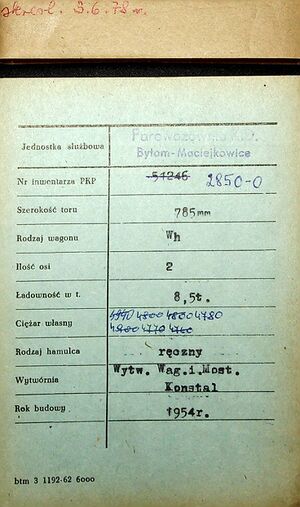 skreśl. 3.6.78 r.
Jednostka służbowa
Parowozownia K.D.
Bytom-Maciejkowice
Nr inwentarza PKP 51246 2850-0
Szerokość toru 785mm
Rodzaj wagonu Wh
Ilość osi 2
Ładowność w t. 8,5t.
Ciężar własny 4990 4800 4800 4780
4800 4770 4760
Rodzaj hamulca ręczny
Wytwórnia Wytw. Wag.i.Most.
Konstal
Rok budowy 1954r.
btm 3 1192-62 6000